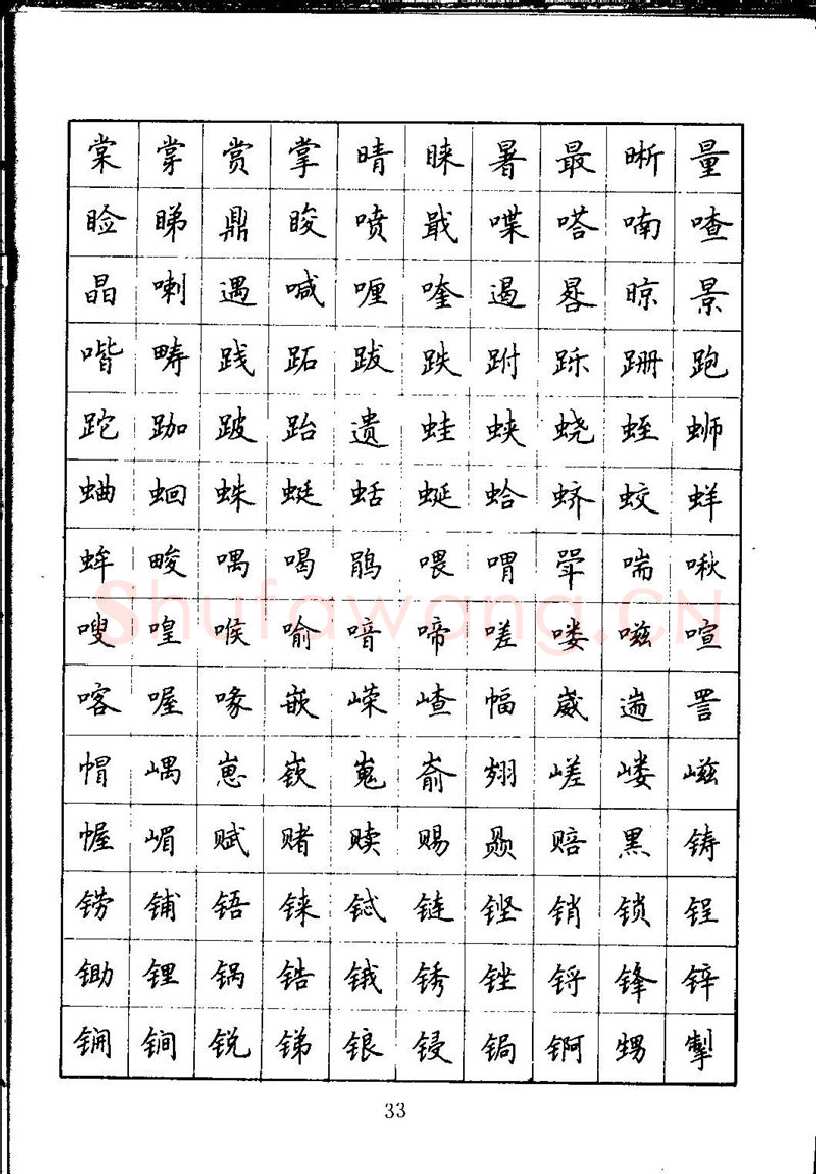 棠 牚 赏 掌 晴 睐 暑 最 晰 量
睑 睇 鼎 睃 喷 戢 喋 嗒 喃 喳
晶 喇 遇 喊 喱 喹 遏 晷 晾 景
喈 畴 践 跖 跋 跌 跗 跞 跚 跑
跎 跏 跛 跆 遗 蛙 蛱 蛲 蛭 蛳
蛐 蛔 蛛 蜓 蛞 蜒 蛤 蛴 蛟 蛘
蛑 畯 喁 喝 鹃 喂 喟 斝 喘 啾
嗖 喤 喉 喻 喑 啼 嗟 喽 嗞 喧
喀 喔 喙 嵌 嵘 嵖 幅 崴 遄 詈
帽 嵎 崽 嵚 嵬 嵛 翙 嵯 嵝 嵫
幄 嵋 赋 赌 赎 赐 赑 赔 黑 铸
铹 铺 铻 铼 铽 链 铿 销 锁 锃
锄 锂 锅 锆 锇 锈 锉 锊 锋 锌
锎 锏 锐 锑 锒 锓 锔 锕 甥 掣
33
Shufawang.CN